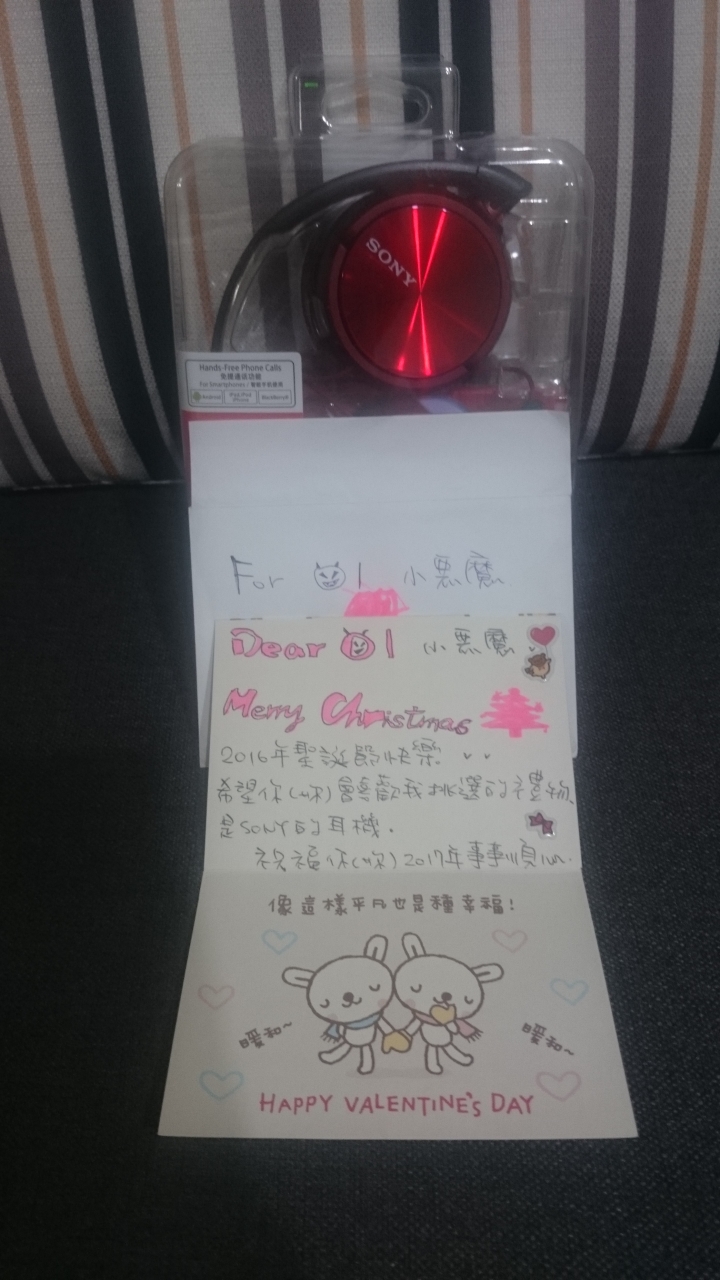 SONY
Hands-Free Phone Calls
免提通話功能
for Smartphones / 智慧手機適用
Android
iPod.iPad
iPhone
BlackBerry®
For 1 小惡魔
Dear 1 小惡魔
Merry Christmas
2016年聖誕節快樂
希望你(妳)會喜歡我挑選的禮物
是SONY的耳機.
祝福你(妳)2017年事事順心.
像這樣平凡也是種幸福!
暖和~
暖和~
HAPPY VALENTINE'S DAY